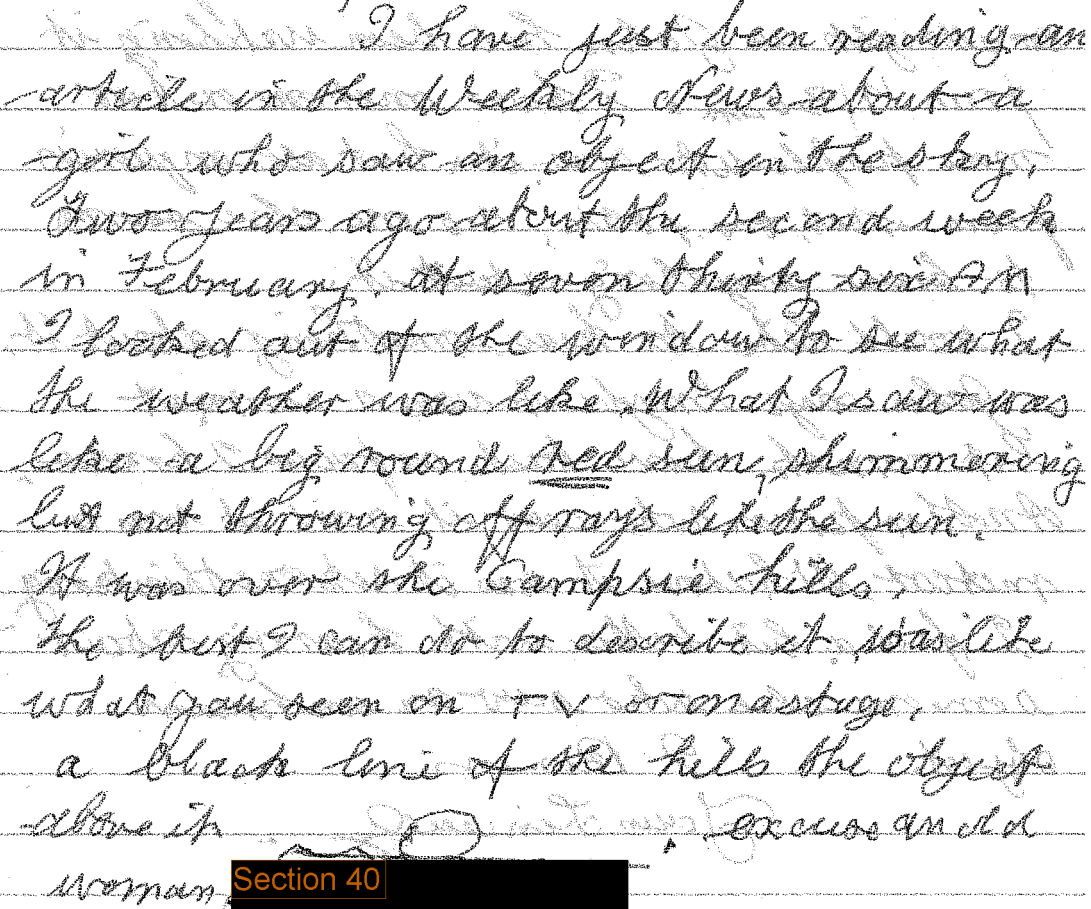 I have just been reading an
article in the Weekly News about a
girl who saw an object in the sky.
Two years ago about the second week
in February. at seven thirty six AM
I looked out of the window to see what
the weather was like. What I saw was
like a big round red sun, shimmering
but not throwing off rays like the sun.
It was over the Campsie hills.
The best I can do to describe it, was like
what you seen on TV or on a stage.
a black line of the hills the object
above it. excuse an old
woman.
Section 40